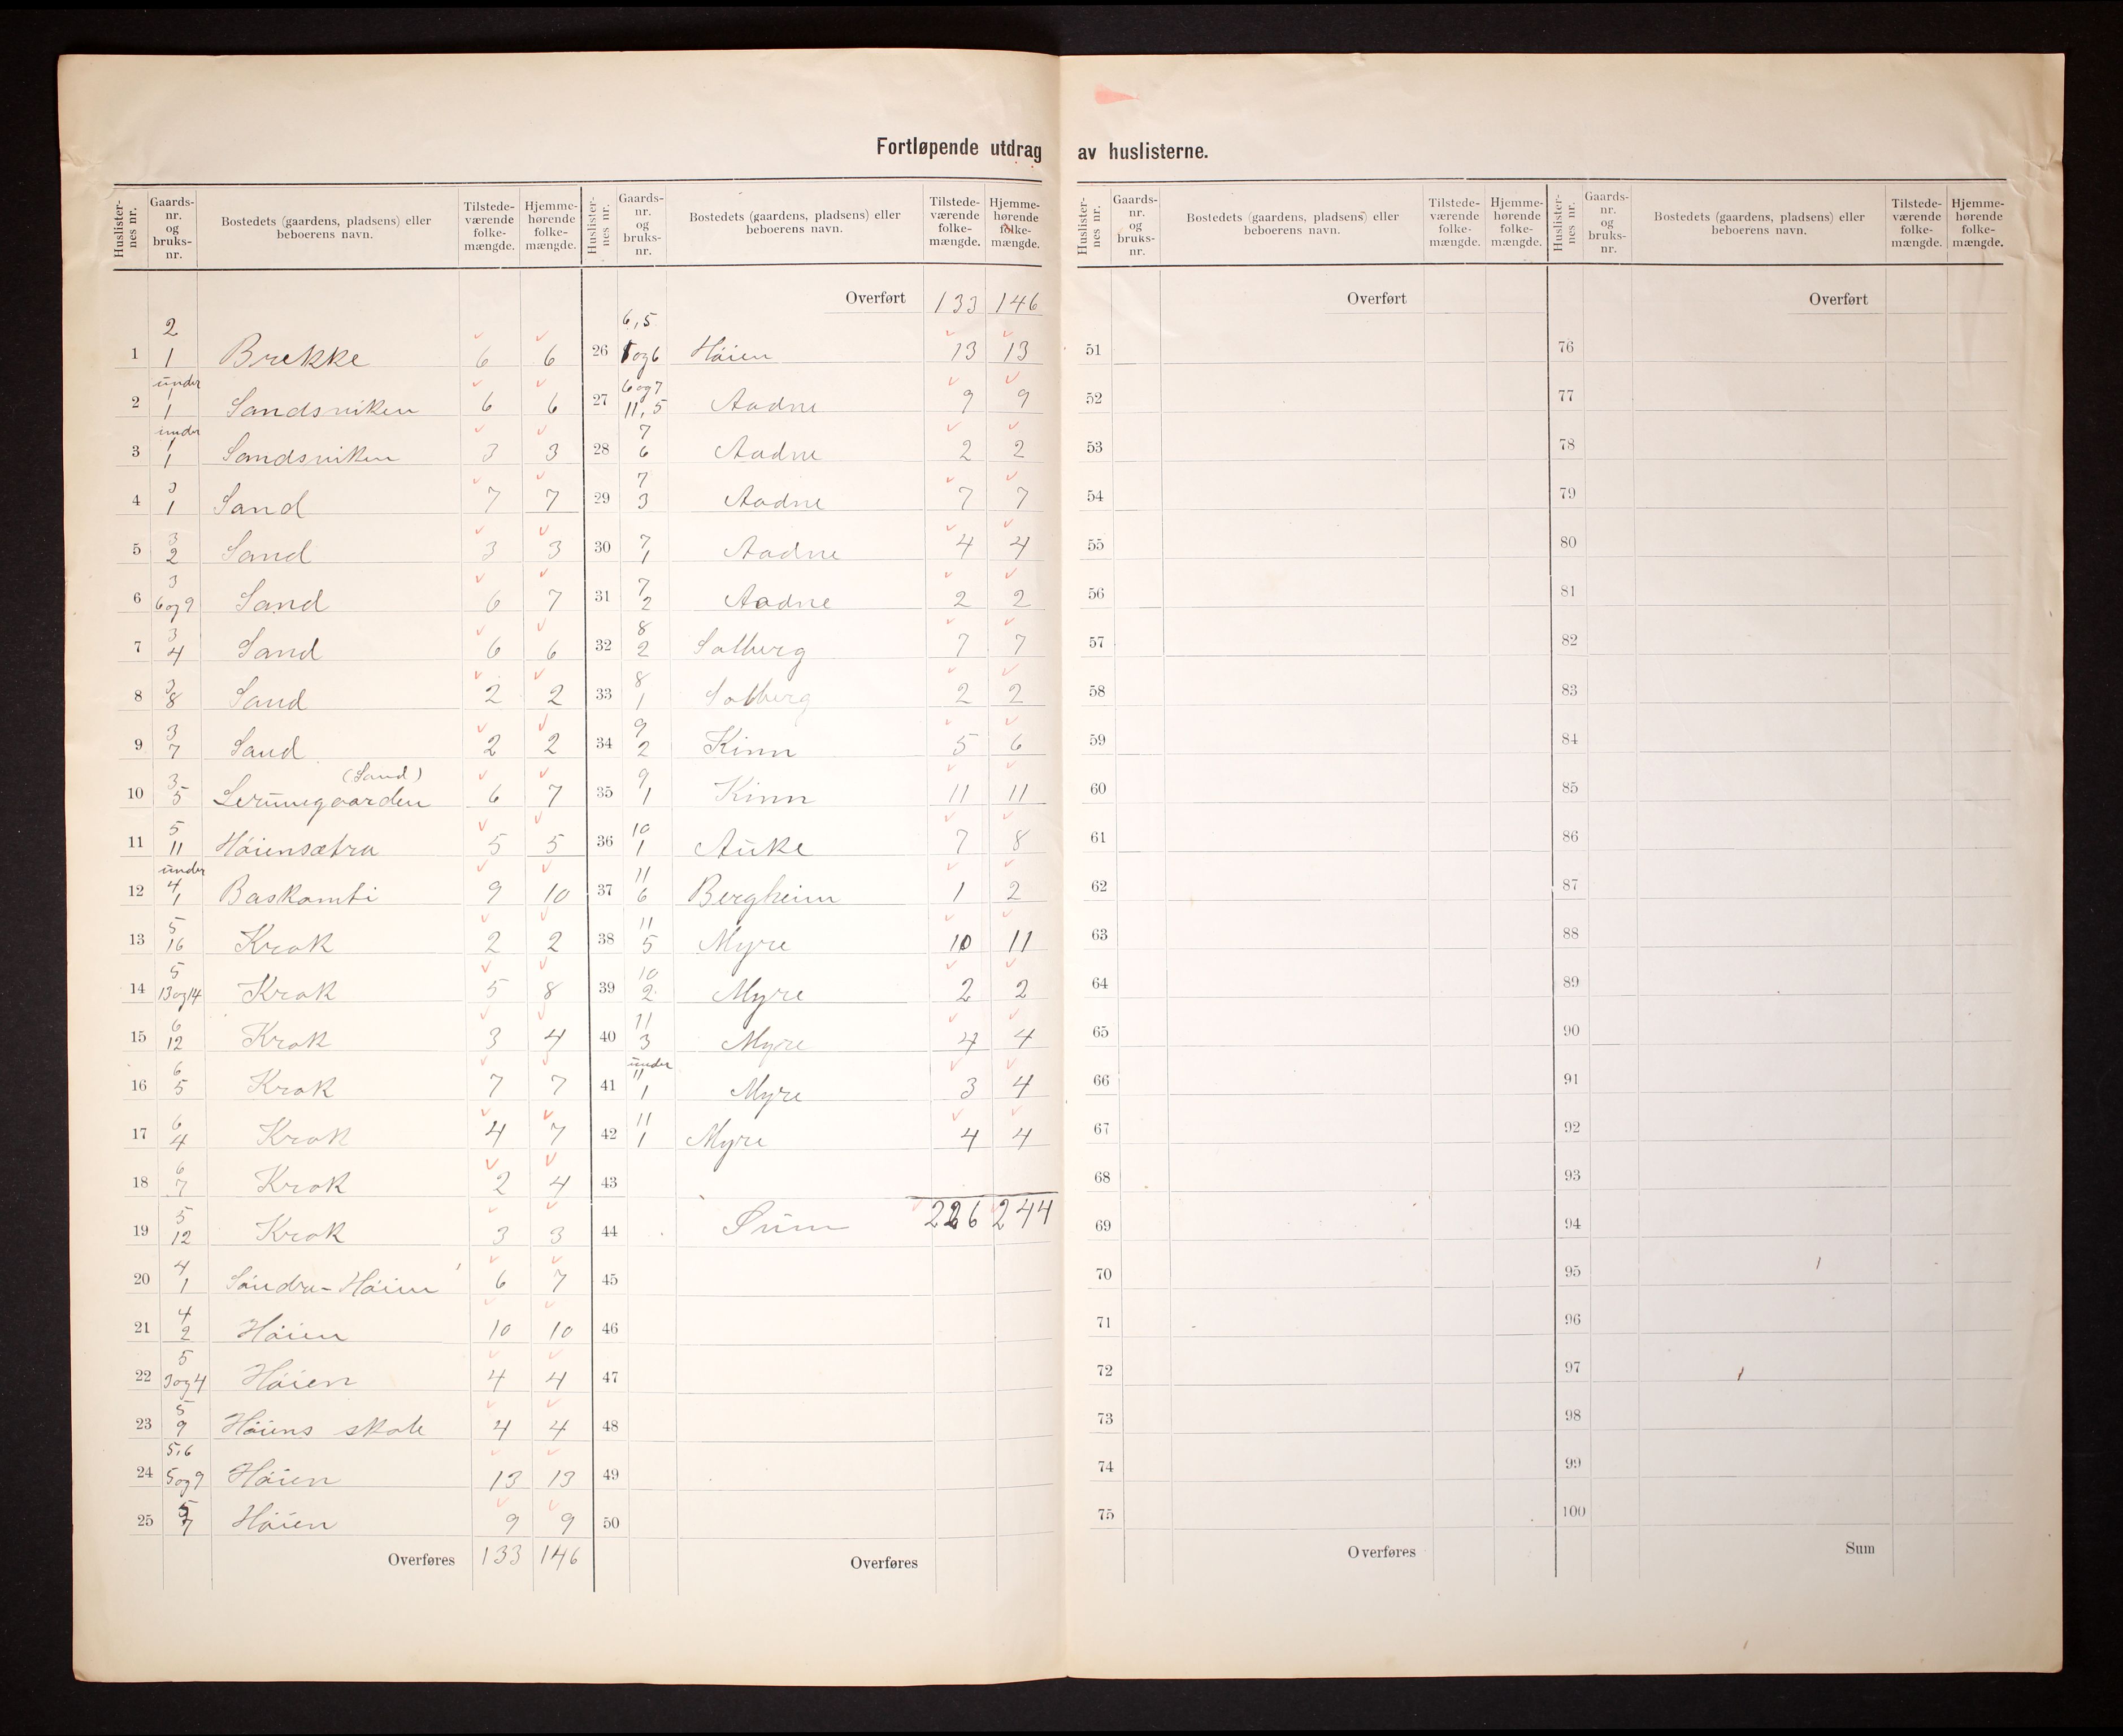 Fortløpende utdrag av huslisterne.
Huslister-nes nr. | Gaards-nr. og bruks-nr. | Bostedets (gaardens, pladsens) eller beboerens navn. | Tilstede-værende folke-mængde. | Hjemme-hørende folke-mængde.
1 | 2 / 1 | Brekke | 6 | 6
2 | under 1 / 1 | Sandsviken | 6 | 6
3 | under 1 / 1 | Sandsviken | 3 | 3
4 | 3 / 1 | Sand | 7 | 7
5 | 3 / 2 | Sand | 3 | 3
6 | 3 / 6 og 9 | Sand | 6 | 7
7 | 3 / 4 | Sand | 6 | 6
8 | 3 / 8 | Sand | 2 | 2
9 | 3 / 7 | Sand | 2 | 2
10 | 3 / 5 | Lerumgaarden (Sand) | 6 | 7
11 | 5 / 11 | Høiensætra | 5 | 5
12 | under 4 / 1 | Baskambi | 9 | 10
13 | 5 / 16 | Krok | 2 | 2
14 | 5 / 13 og 14 | Krok | 5 | 8
15 | 6 / 12 | Krok | 3 | 4
16 | 6 / 5 | Krok | 7 | 7
17 | 6 / 4 | Krok | 4 | 7
18 | 6 / 7 | Krok | 2 | 4
19 | 5 / 12 | Krok | 3 | 3
20 | 4 / 1 | Søndre-Høien | 6 | 7
21 | 4 / 2 | Høien | 10 | 10
22 | 5 / 3 og 4 | Høien | 4 | 4
23 | 5 / 9 | Høiens skole | 4 | 4
24 | 5, 6 / 5 og 9 | Høien | 13 | 13
25 | 5 / 7 | Høien | 9 | 9
Overføres 133 146
Huslister-nes nr. | Gaards-nr. og bruks-nr. | Bostedets (gaardens, pladsens) eller beboerens navn. | Tilstede-værende folke-mængde. | Hjemme-hørende folke-mængde.
Overført 133 146
26 | 6, 5 / 1 og 6 | Høien | 13 | 13
27 | 6 og 7 / 11, 5 | Aadne | 9 | 9
28 | 7 / 6 | Aadne | 2 | 2
29 | 7 / 3 | Aadne | 7 | 7
30 | 7 / 1 | Aadne | 4 | 4
31 | 7 / 2 | Aadne | 2 | 2
32 | 8 / 2 | Solberg | 7 | 7
33 | 8 / 1 | Solberg | 2 | 2
34 | 9 / 2 | Kinn | 5 | 6
35 | 9 / 1 | Kinn | 11 | 11
36 | 10 / 1 | Auke | 7 | 8
37 | 11 / 6 | Bergheim | 1 | 2
38 | 11 / 5 | Myre | 10 | 11
39 | 10 / 2 | Myre | 2 | 2
40 | 11 / 3 | Myre | 4 | 4
41 | under 11 / 1 | Myre | 3 | 4
42 | 11 / 1 | Myre | 4 | 4
43
44 Sum 226 244
45
46
47
48
49
50
Overføres
Huslister-nes nr. | Gaards-nr. og bruks-nr. | Bostedets (gaardens, pladsens) eller beboerens navn. | Tilstede-værende folke-mængde. | Hjemme-hørende folke-mængde.
Overført
51
52
53
54
55
56
57
58
59
60
61
62
63
64
65
66
67
68
69
70
71
72
73
74
75
Overføres
Huslister-nes nr. | Gaards-nr. og bruks-nr. | Bostedets (gaardens, pladsens) eller beboerens navn. | Tilstede-værende folke-mængde. | Hjemme-hørende folke-mængde.
Overført
76
77
78
79
80
81
82
83
84
85
86
87
88
89
90
91
92
93
94
95
96
97
98
99
100
Sum